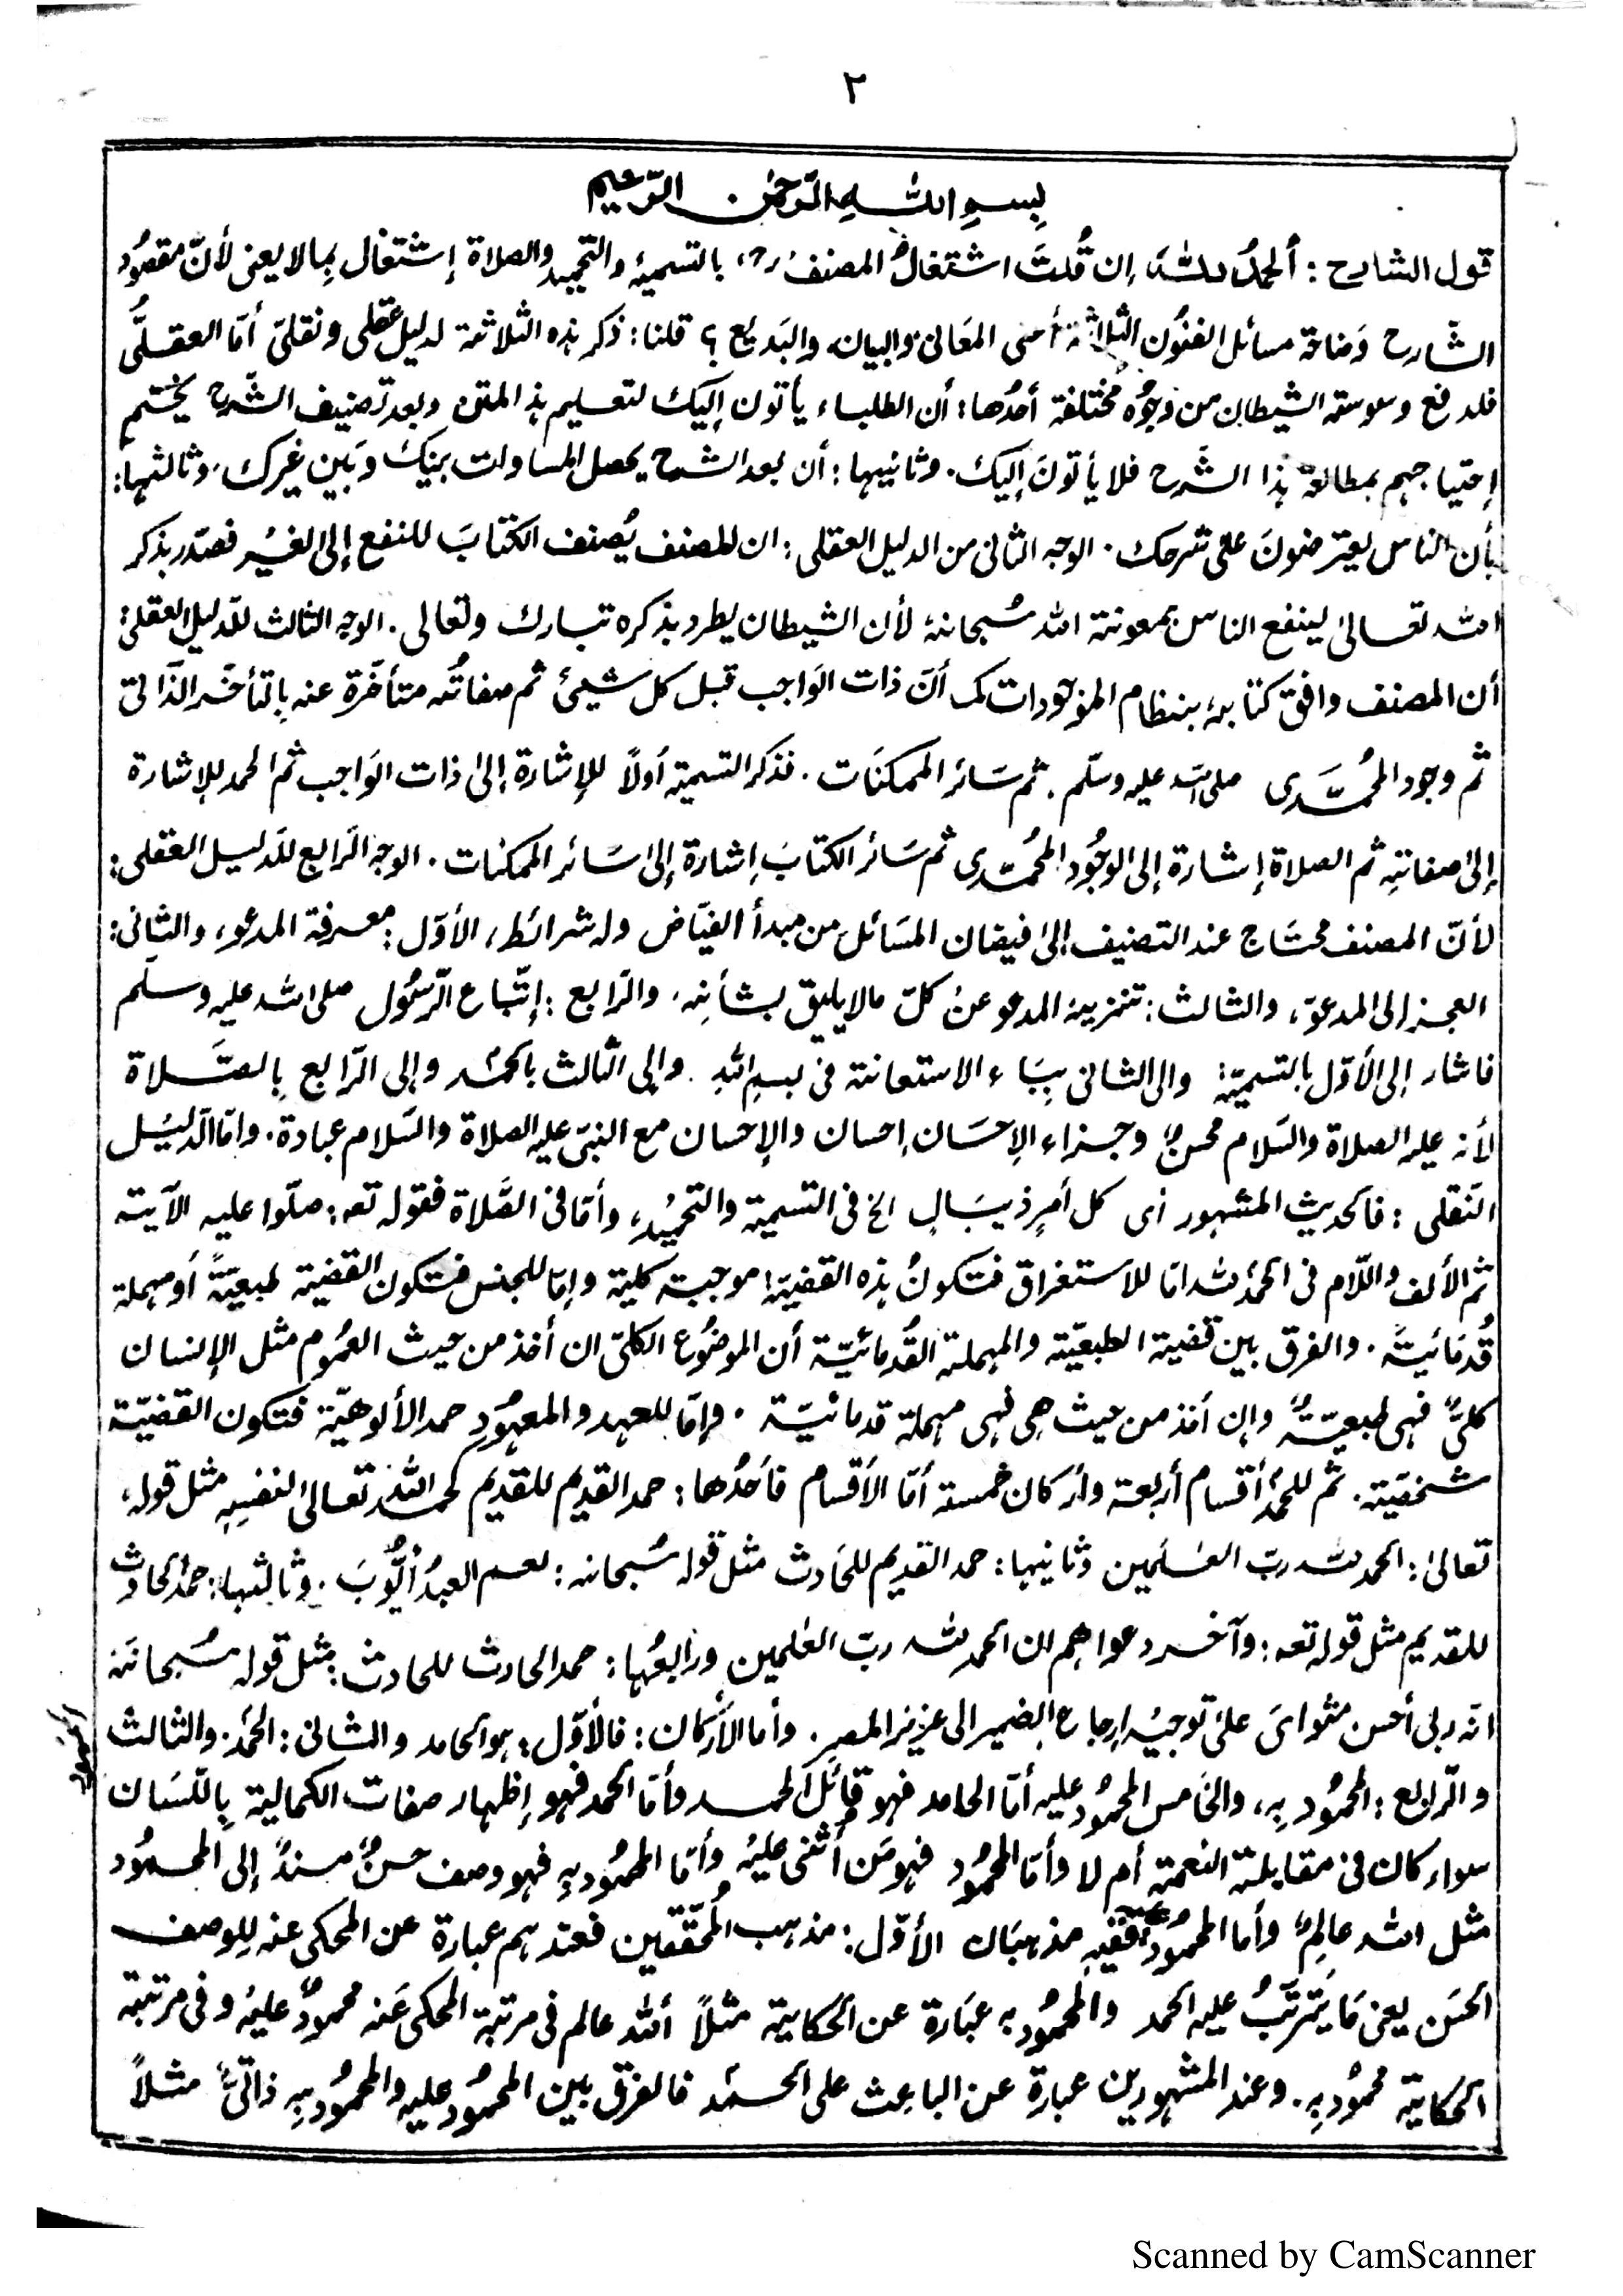 ٢
بِسمِ اللهِ الرَّحمٰن الرَّحِيم
قول الشارح : أَلحمدُ لله، إن قُلتَ اشتغالُ المصنف رح، بالتسمية والتحميد والصلاة إشتغال بِمالا يعنى لأنّ مقصُود
الشّارح وَضاحة مسائل الفنُون الثلاثة أعنى المَعانى والبيان والبَديع ؟ قلنا : ذكر هذه الثلاثة لدليل عقلى ونقلىّ أمّا العقلىُّ
فلدفع وسوسة الشيطان من وجُوه مختلفة أحدُها : أن الطلباء يأتون إليك لتعليم هذ المتن وبعد تصنيف الشّرح يختتم
إحتياجهم بمطالعة هذا الشَّرح فلا يأتونَ إليك . وثانيها : أن بعد الشرح يحصل المساوات بينك وبَين غيرك، وثالثها :
بأن الناس يعترضونَ على شرحك . الوجه الثانى من الدليل العقلى : ان المصنف يُصنف الكتابَ للنفع إلى الغيْر فصدّر بذكر
الله تعالىٰ لينفع الناس بمعونة الله سُبحانهٗ لأن الشيطان يطرد بذكره تبارك وتعالى . الوجه الثالث للّدليل العقلىّ :
أن المصنف وافق كتابهٗ بنظام الموجودات كما أنّ ذات الوَاجب قبل كل شيئ ثم صفاتُه متأخّرة عنه بِالتأخّر الذّاتى
ثم وجود المُحمّدى صلى الله عليه وسلّم . ثم سَائر الممكنَات . فذكر التسمية أولاً للإشارة إلىٰ ذات الوَاجب ثم الحمد للإشارة
إلىٰ صفاتِهٖ ثم الصلاة إشارة إلى الوجُود المُحمّدى ثم سَائر الكتابَ إشارة إلىٰ سَائر الممكنات . الوجه الرّابع للّدليل العقلى :
لأنّ المصنف محتاج عند التصنيف إلىٰ فيضان المسَائل من مبدأ الفيّاض وله شرائط، الأوّل : معرفة المدعو، والثانى :
العجز إلى المدعوّ، والثالث : تنزيه المدعو عنْ كلّ مالا يليق بشأنِهٖ، والرّابع : إتّباع الرّسُول صلى الله عليه وسلّم
فاشار إلى الأوّل بالتسميّة والى الثانى بِبَاء الاستعانة فى بسمِ اللهِ . وإلى الثّالث بالحمْد وإلى الرّابع بِالصَّلاة
لأنه عليه الصلاة والسّلام محسنٌ وجزاء الإحسَان إحسان والإحسان مع النبىّ عليه الصلاة والسّلام عبادة . وامّا الدّليْل
النّقلى : فالحديث المشهور اى كل أمرٍ ذى بَالٍ الخ فى التسمية والتحميْد، وأمّا فى الصَّلاة فقوله تعـ : صلّوا عليه الآية
ثم الألف واللّام فى الحمْد لله امّا للاستغراق فتكونُ هذه القضيّة موجبة كلية وإمّا للجنس فتكون القضية طبعيّةً أو مهملة
قُدمائيةً . والفرق بين قضية الطبعيّة والمهملة القُدمائيّة أن الموضُوع الكلىّ ان أخذ من حيث العمُوم مثل الإنسان
كلىٌّ فهى طبعيّةٌ وإن أخذ من حيث هى فهى مهملة قدمائيّة . وإمّا للعهد والمعهُودِ حمد الألوهيّة فتكون القضيّة
شخصّية . ثم للحمدِ أقسام أربعة وأركان خمسة أمّا الأقسام فأحَدُها : حمد القديم للقديم كحمد اللهِ تعالىٰ لنفسِهٖ مثل قوله
تعالىٰ : الحمد لله ربّ العٰلَمين وثانيها : حمد القديم للحَادث مثل قوله سُبحانه : نعم العبدُ أيُّوبَ . وثالثها : حمد الحادث
للقديم مثل قوله تعـ : وآخر دعواهم ان الحمد لله ربّ العٰلمين ورابعُها : حمد الحادث للحادث : مثل قوله سُبحانَهٗ
انّه ربى أحسن مثواىَ علىٰ توجيْه إرجاع الضمير الى عزيز المصر . وأما الأَركان : فالأوّل : هو الحامد والثانى : الحمْد . والثالث
المحمود
والرّابع : المحمُود بِه، والخَامس المحمُود عليه أمّا الحامد فهو قائلُ الحمد وأمّا الحمد فهو إظهار صفات الكمالية بِاللّسَان
سواء كان فى مقابلة النعمة أم لا وأمّا المحمُود فهو مَن أُثنى عليْه وأمّا المحمُود بِه فهو وصف حسنٌ مسندٌ إلى المحمُود
مثل الله عالِمٌ وأما المحمُود عليه ففيهِ مذهبَان الأوّل : مذهب المُحقّقين فعندهم عبارة عن المحكى عنه للوصف
الحسَن يعنى مَا يَترتّبُ عليه الحمد والمحمُود به عبَارة عن الحكاية مثلاً أللهُ عالم فى مرتبة المحكى عَنه محمودٌ عليْه وفى مرتبة
الحكاية محمُود بِه . وعند المشهورين عبارة عن الباعِث على الحمْد فالفرق بين المحمُود عليه والمحمُود بِه ذاتىٌّ مثلاً
Scanned by CamScanner